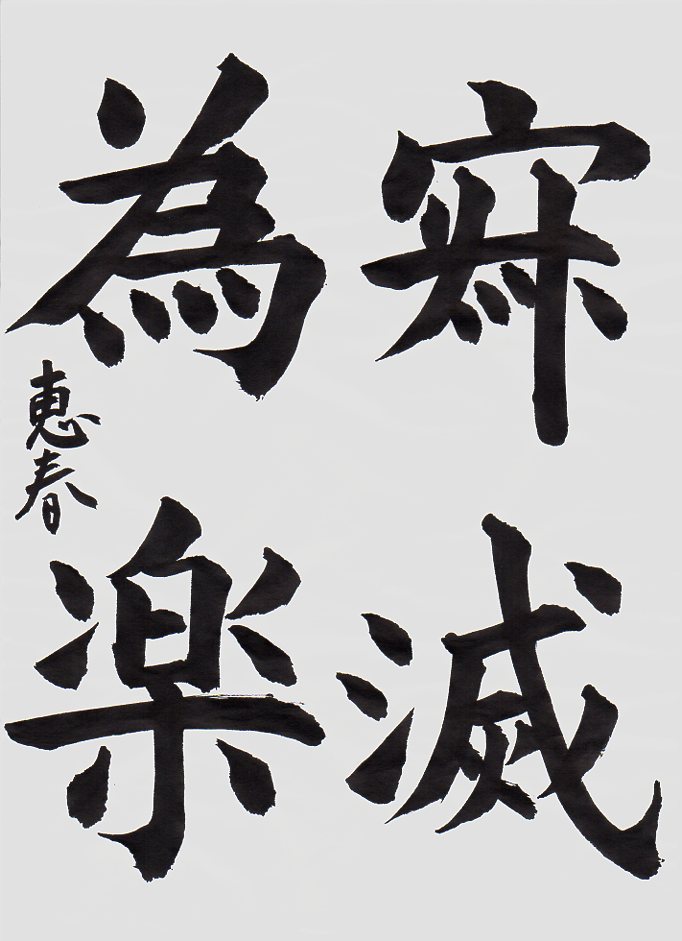 寂滅
為楽
恵春